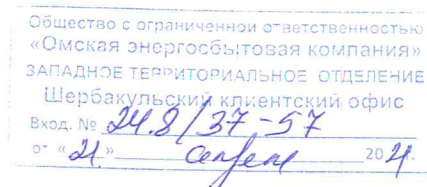 Общество с ограниченной ответственностью
«Омская энергосбытовая компания»
ЗАПАДНОЕ ТЕРРИТОРИАЛЬНОЕ ОТДЕЛЕНИЕ
Шербакульский клиентский офис
Вход. № 24.8/37-57
от «21» 2021.